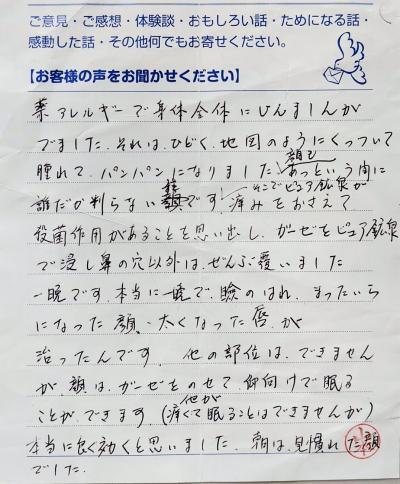 ご意見・ご感想・体験談・おもしろい話・ためになる話・
感動した話・その他何でもお寄せください。
【お客様の声をお聞かせください】
薬アレルギーで身体全体にじんましんが
でました。それは、ひどく、地図のようにくっついて
腫れて、パンパンになりました。顔も あっという間に
誰だか判らない 顔です。そこでピュア鉱泉が 痛みをおさえて
殺菌作用があることを思い出し、ガーゼをピュア鉱泉
で浸し鼻の穴以外は、ぜんぶ覆いました
一晩です。本当に一晩で、瞼のはれ、まったいら
になった顔、太くなった唇、が
治ったんです。 他の部位は、できません
が、顔は、ガーゼをのせて、仰向けで眠る
ことが、できます。(他が 痛くて眠ることはできませんが)
本当に良く効くと思いました。朝は、見慣れた顔
でした。